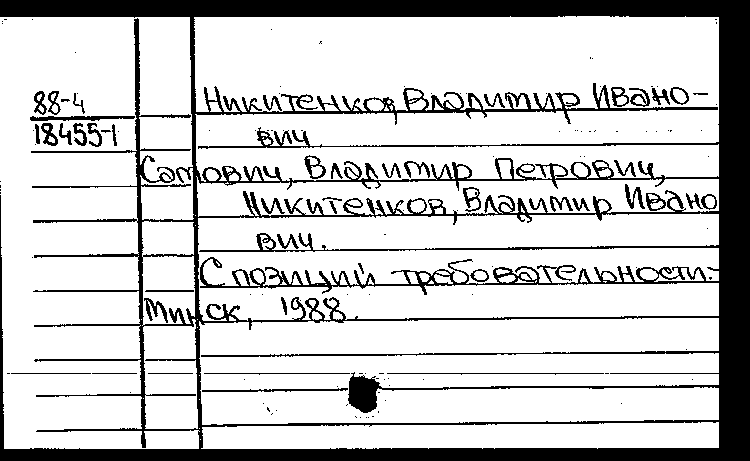 88-4
18455-1
Никитенков, Владимир Ивано-
вич
Самович, Владимир Петрович,
Никитенков, Владимир Ивано
вич.
С позиций требовательности.-
Минск, 1988.